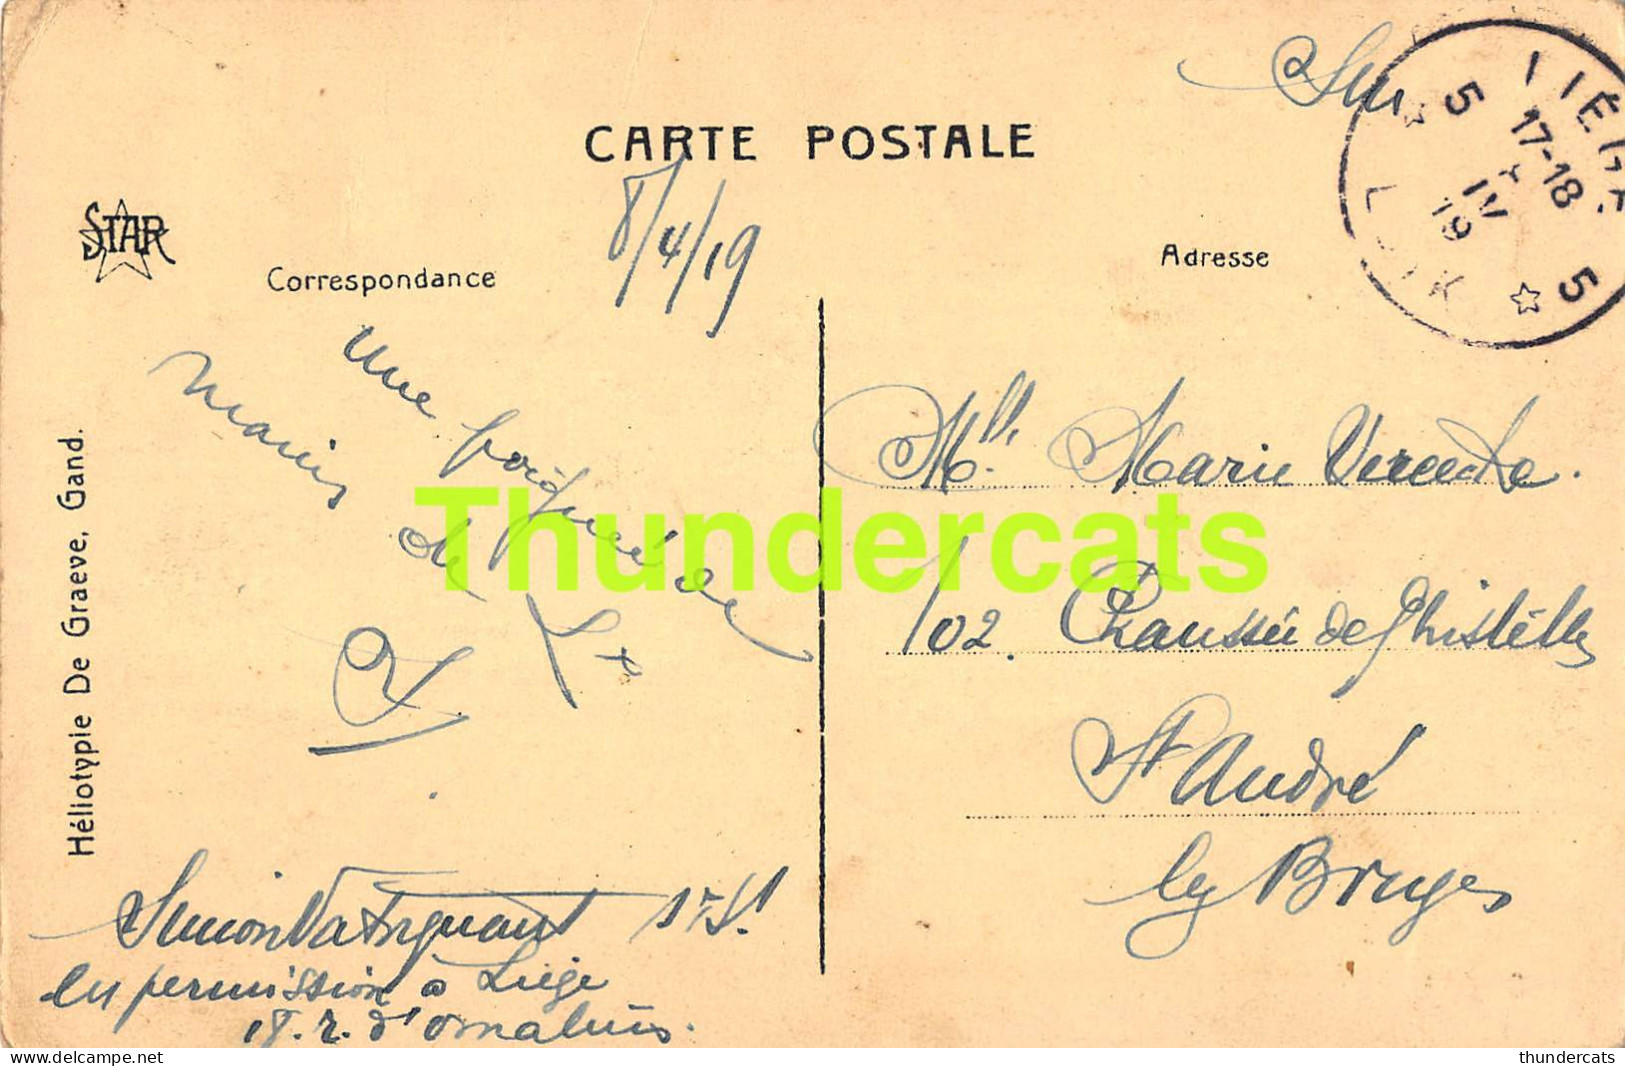 CARTE POSTALE
STAR
Correspondance
8/4/19
Adresse
LIÉGE
5 17-18 5
IV
19
LUIK
Une poignée de
mains
de
Mlle. Marie Vercoutre.
102. Chaussée de Ghistelles
St André
lez Bruges
Simon 1r Sgt
en permission à Liége
18. r. d'omalius.
Héliotypie De Graeve, Gand.
Thundercats
thundercats
delcampe.net